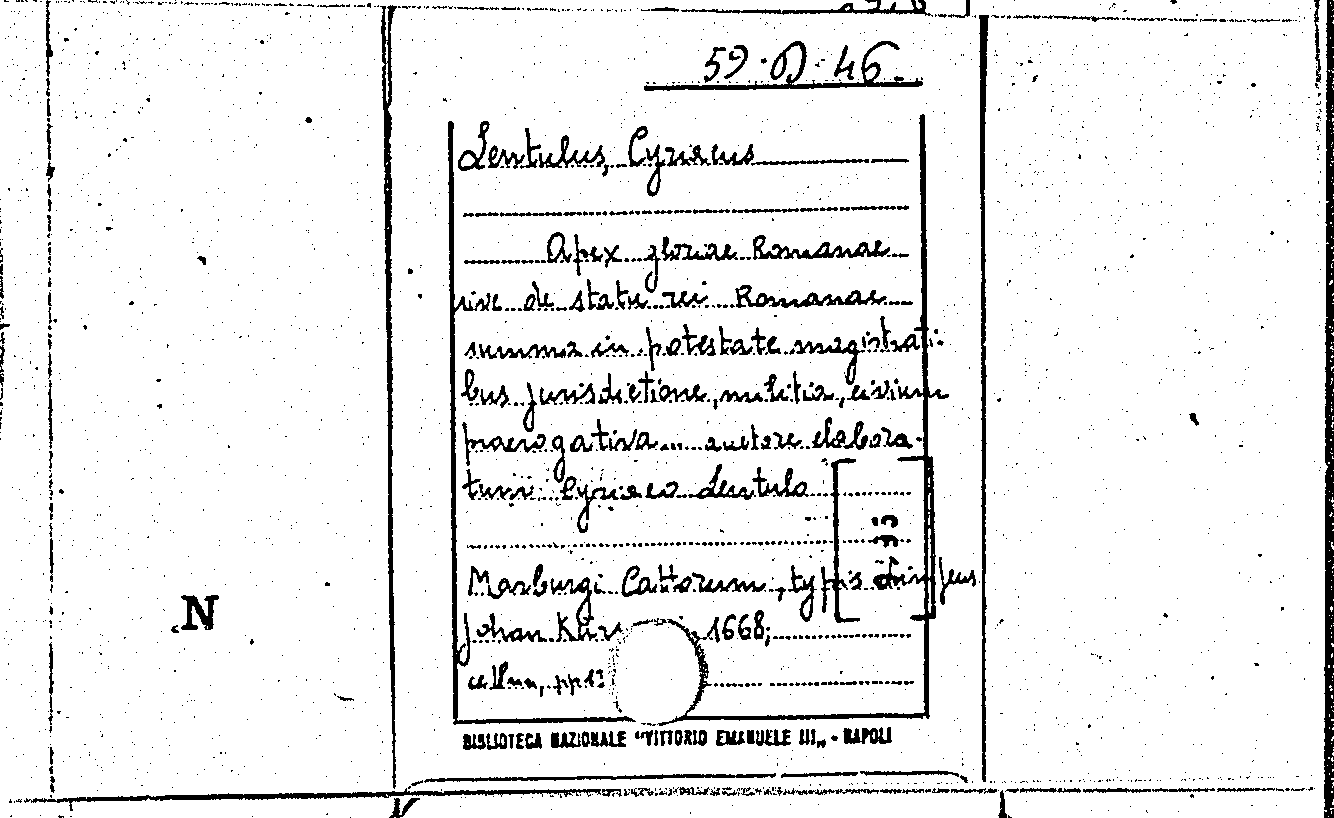 59.D.46.
Lentulus, Cyriacus
Apex gloriae Romanae
sive de statu rei Romanae
summa in potestate magistrati-
bus jurisdictione, militia, civium
praerogativa... auctore elabora-
tum Cyriaco Lentulo
93
Marburgi Cattorum, typis
Johan Kür 1668;
pp. 13
N
BIBLIOTECA NAZIONALE "VITTORIO EMANUELE III„ - NAPOLI